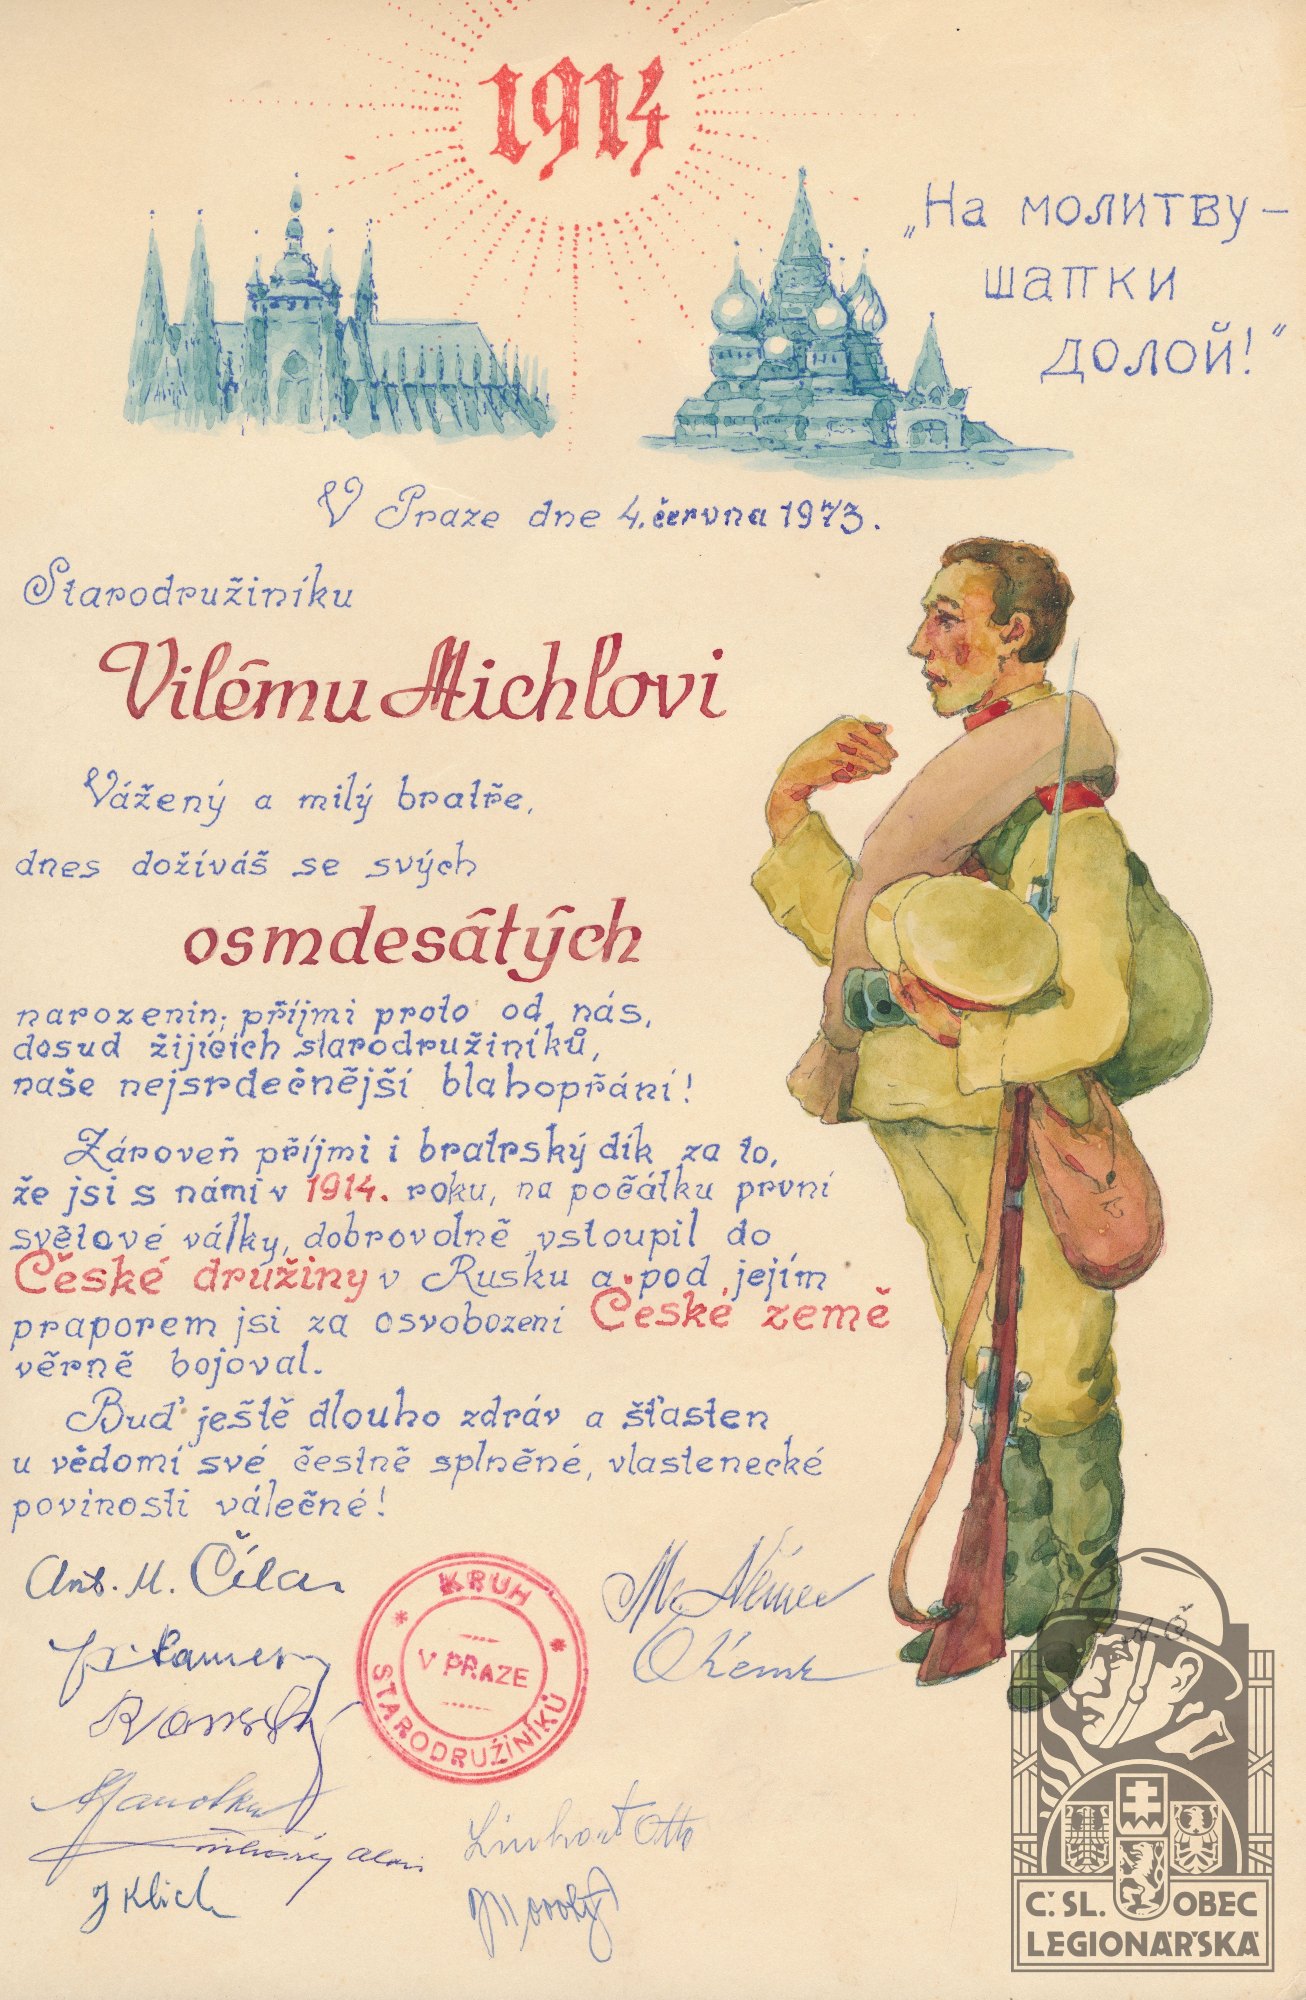 1914
„На молитву –
шапки
долой!“
V Praze dne 4. června 1973.
Starodružiníku
Vilému Michlovi
Vážený a milý bratře,
dnes dožíváš se svých
osmdesátých
narozenin; příjmi proto od nás,
dosud žijících starodružiníků,
naše nejsrdečnější blahopřání!
Zároveň příjmi i bratrský dík za to,
že jsi s námi v 1914. roku, na počátku první
světové války, dobrovolně vstoupil do
České družiny v Rusku a pod jejím
praporem jsi za osvobození České země
věrně bojoval.
Buď ještě dlouho zdráv a šťasten
u vědomí své čestně splněné, vlastenecké
povinosti válečné!
Ant. M. Číla
KRUH
V PRAZE
STARODRUŽINÍKŮ
J Klich
Linhart Otto
Č.SL. OBEC
LEGIONÁŘSKÁ